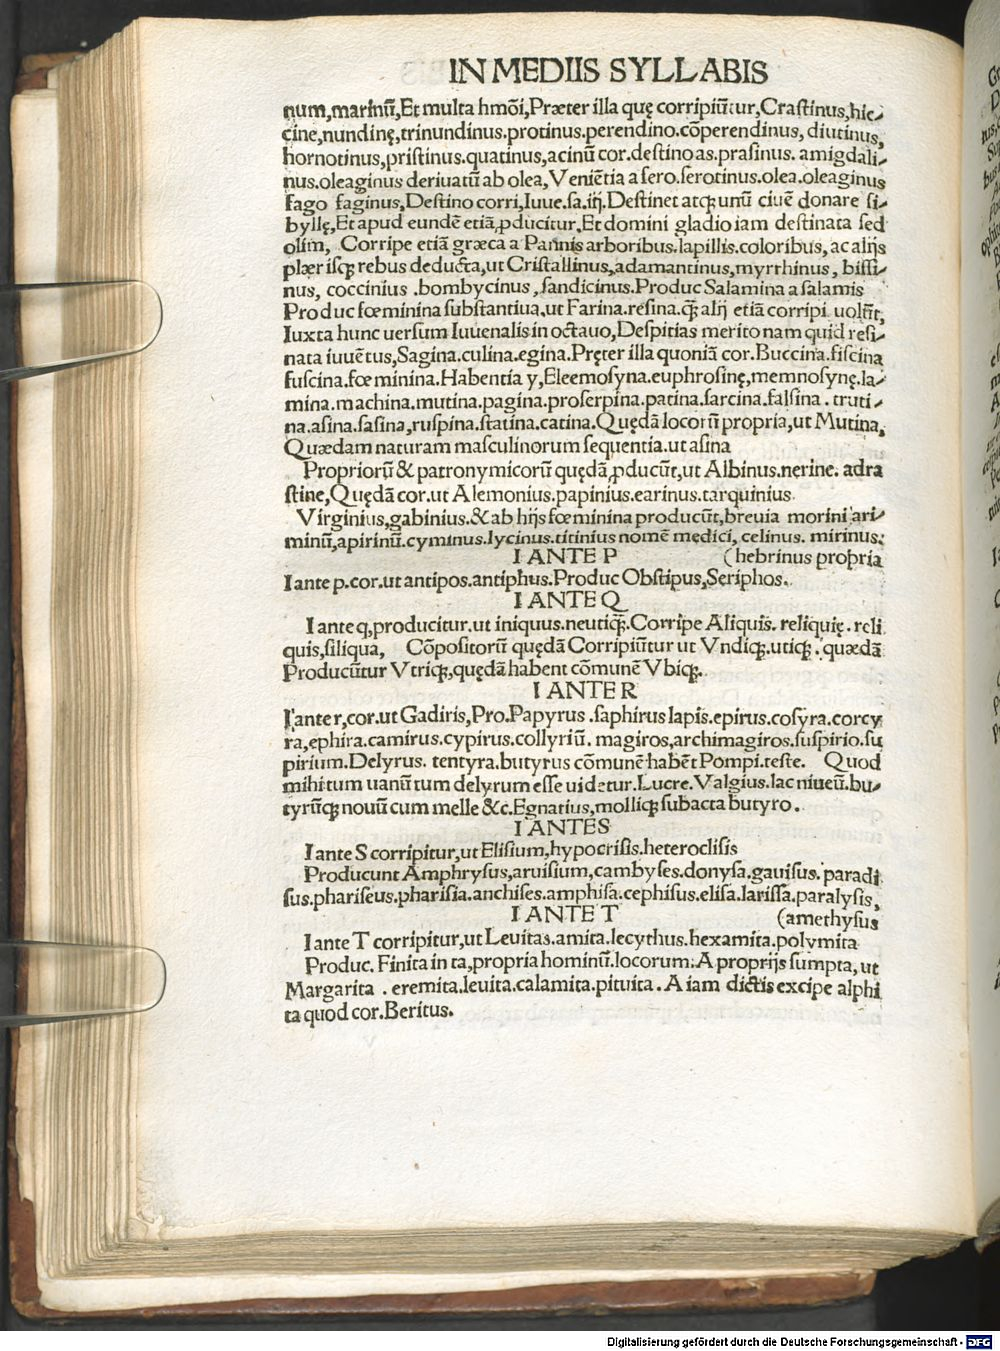 IN MEDIIS SYLLABIS
num,marinū,Et multa hmōi,Præter illa quę corripiūtur,Craſtinus,hic⸗
cine,nundinę,trinundinus.protinus.perendino.cōperendinus, diutinus,
hornotinus,priſtinus.quatinus,acinū cor.deſtino as.praſinus. amigdali⸗
nus.oleaginus deriuatū ab olea,Veniētia a ſero.ſerotinus.olea.oleaginus
fago faginus,Deſtino corri,Iuue.ſa.iij.Deſtinet atqꝫ unū ciuē donare ſi⸗
byllę,Et apud eundē etiā,ꝓducitur.Et domini gladio iam deſtinata ſed
olim, Corripe etiā græca a Pannis arboribus.lapillis.coloribus, ac alijs
plæriſqꝫ rebus deducta,ut Criſtallinus,adamantinus,myrrhinus, biſſi⸗
nus, coccinius .bombycinus, ſandicinus.Produc Salamina a ſalamis
Produc fœminina ſubſtantiua,ut Farina.reſina.qꝫ alij etiā corripi uolūt,
Iuxta hunc uerſum Iuuenalis in octauo,Deſpitias merito nam quid reſi⸗
nata iuuētus,Sagina.culina.egina.Pręter illa quoniā cor.Buccina.fiſcina
fuſcina.fœminina.Habentia y,Eleemoſyna.euphroſinę,memnoſynę.la⸗
mina.machina.mutina.pagina.proſerpina.patina.ſarcina.falſina . truti⸗
na.aſina.ſaſina,ruſpina.ſtatina.catina.Quędā locorū propria,ut Mutina,
Quædam naturam maſculinorum ſequentia.ut aſina
Propriorū & patronymicorū quędā,ꝓducūt,ut Albinus.nerine. adra
ſtine,Quędā cor.ut Alemonius.papinius.earinus.tarquinius.
Virginius,gabinius.& ab hijs fœminina producūt,breuia morini ari⸗
minū,apirinū.cyminus.lycinus.titinius nomē medici, celinus. mirinus.
I ANTE P (hebrinus propria
I ante p.cor.ut antipos.antiphus.Produc Obſtipus,Seriphos.
I ANTE Q
I ante q,producitur.ut iniquus.neutiqꝫ.Corripe Aliquis. reliquię . reli
quis,ſiliqua, Cōpoſitorū quędā Corripiūtur ut Vndiqꝫ.utiqꝫ . quædā
Producūtur Vtriqꝫ,quędā habent cōmunē Vbiqꝫ.
I ANTE R
I ante r,cor.ut Gadiris,Pro.Papyrus .ſaphirus lapis.epirus.coſyra.corcy
ra,ephira.camirus.cypirus.collyriū. magiros,archimagiros.ſuſpirio.ſu
pirium.Delyrus. tentyra.butyrus cōmunē habēt Pompi.teſte. Quod
mihi tum uanū tum delyrum eſſe uidetur.Lucre.Valgius.lac niueū.bu⸗
tyrūqꝫ nouū cum melle &c.Egnatius,molliqꝫ ſubacta butyro .
I ANTE S
I ante S corripitur,ut Eliſium,hypocriſis.heterocliſis
Producunt Amphryſus,aruiſium,cambyſes.donyſa.gauiſus. paradi
ſus.phariſeus.phariſia.anchiſes.amphiſa.cephiſus.eliſa.lariſſa.paralyſis,
I ANTE T (amethyſus
I ante T corripitur,ut Leuitas.amita.lecythus.hexamita.polymita
Produc. Finita in ta,propria hominū.locorum.A proprijs ſumpta, ut
Margarita . eremita.leuita.calamita.pituita. A iam dictis excipe alphi
ta quod cor.Beritus.
Digitalisierung gefördert durch die Deutsche Forschungsgemeinschaft - DFG